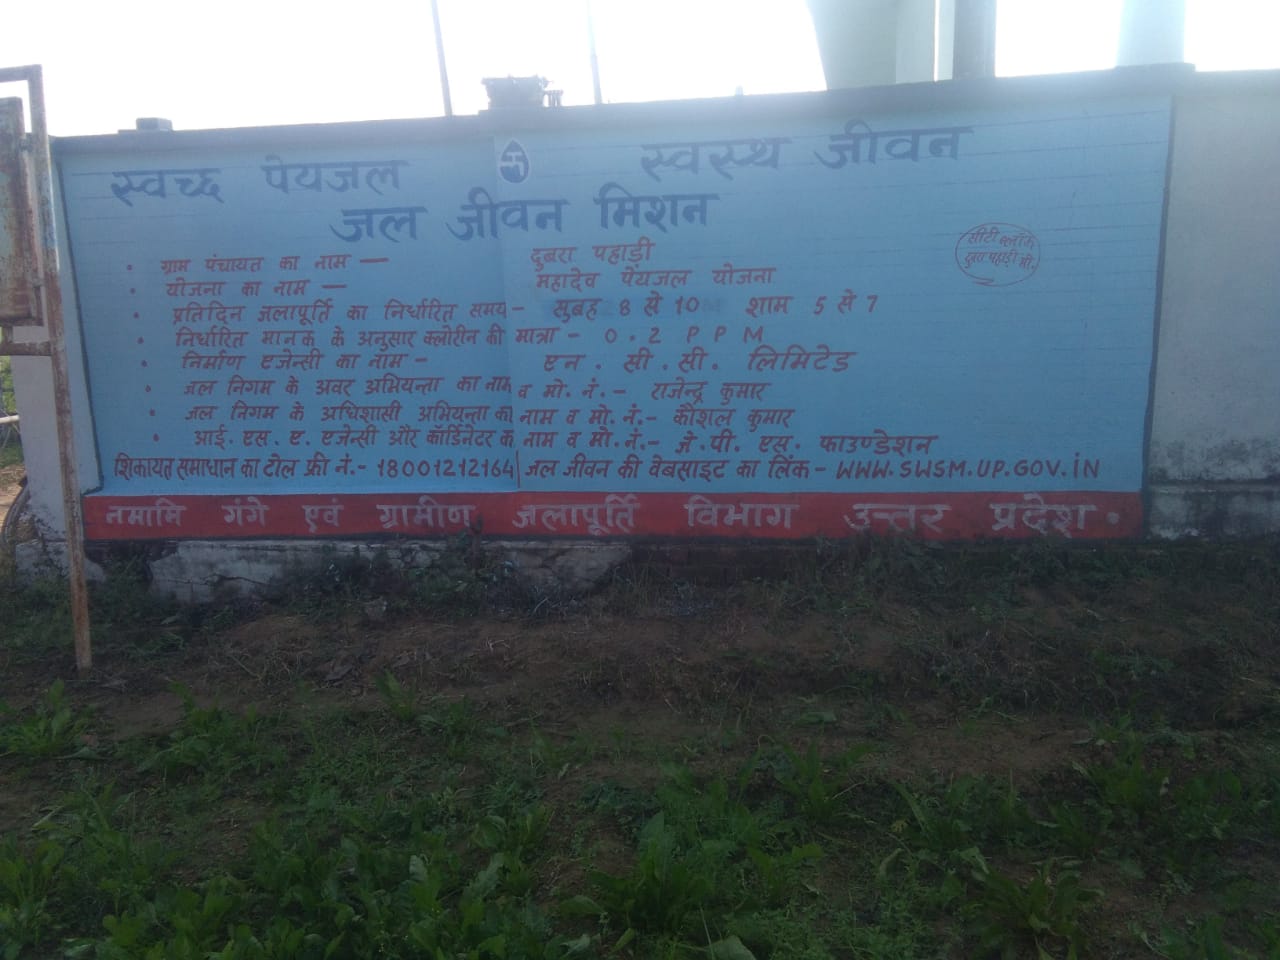 स्वच्छ पेयजल स्वस्थ जीवन
जल जीवन मिशन
ग्राम पंचायत का नाम — दुबरा पहाड़ी
योजना का नाम — महादेव पेंयजल योजना
प्रतिदिन जलापूर्ति का निर्धारित समय - सुबह 8 से 10 शाम 5 से 7
निर्धारित मानक के अनुसार क्लोरिन की मात्रा - 0.2 PPM
निर्माण एजेन्सी का नाम - एन. सी. सी. लिमिटेड
जल निगम के अवर अभियन्ता का नाम व मो. नं. - राजेन्द्र कुमार
जल निगम के अधिशासी अभियन्ता का नाम व मो. नं. - कौशल कुमार
आई. एस. ए. एजेन्सी और कॉर्डिनेटर का नाम व मो. नं. - जे. पी. एस. फाउण्डेशन
शिकायत समाधान का टोल फ्री नं. - 18001212164 जल जीवन की वेबसाइट का लिंक - WWW.SWSM.UP.GOV.iN
नमामि गंगे एवं ग्रामीण जलापूर्ति विभाग उत्तर प्रदेश.
सीटी ब्लॉक
दुबरा पहाड़ी